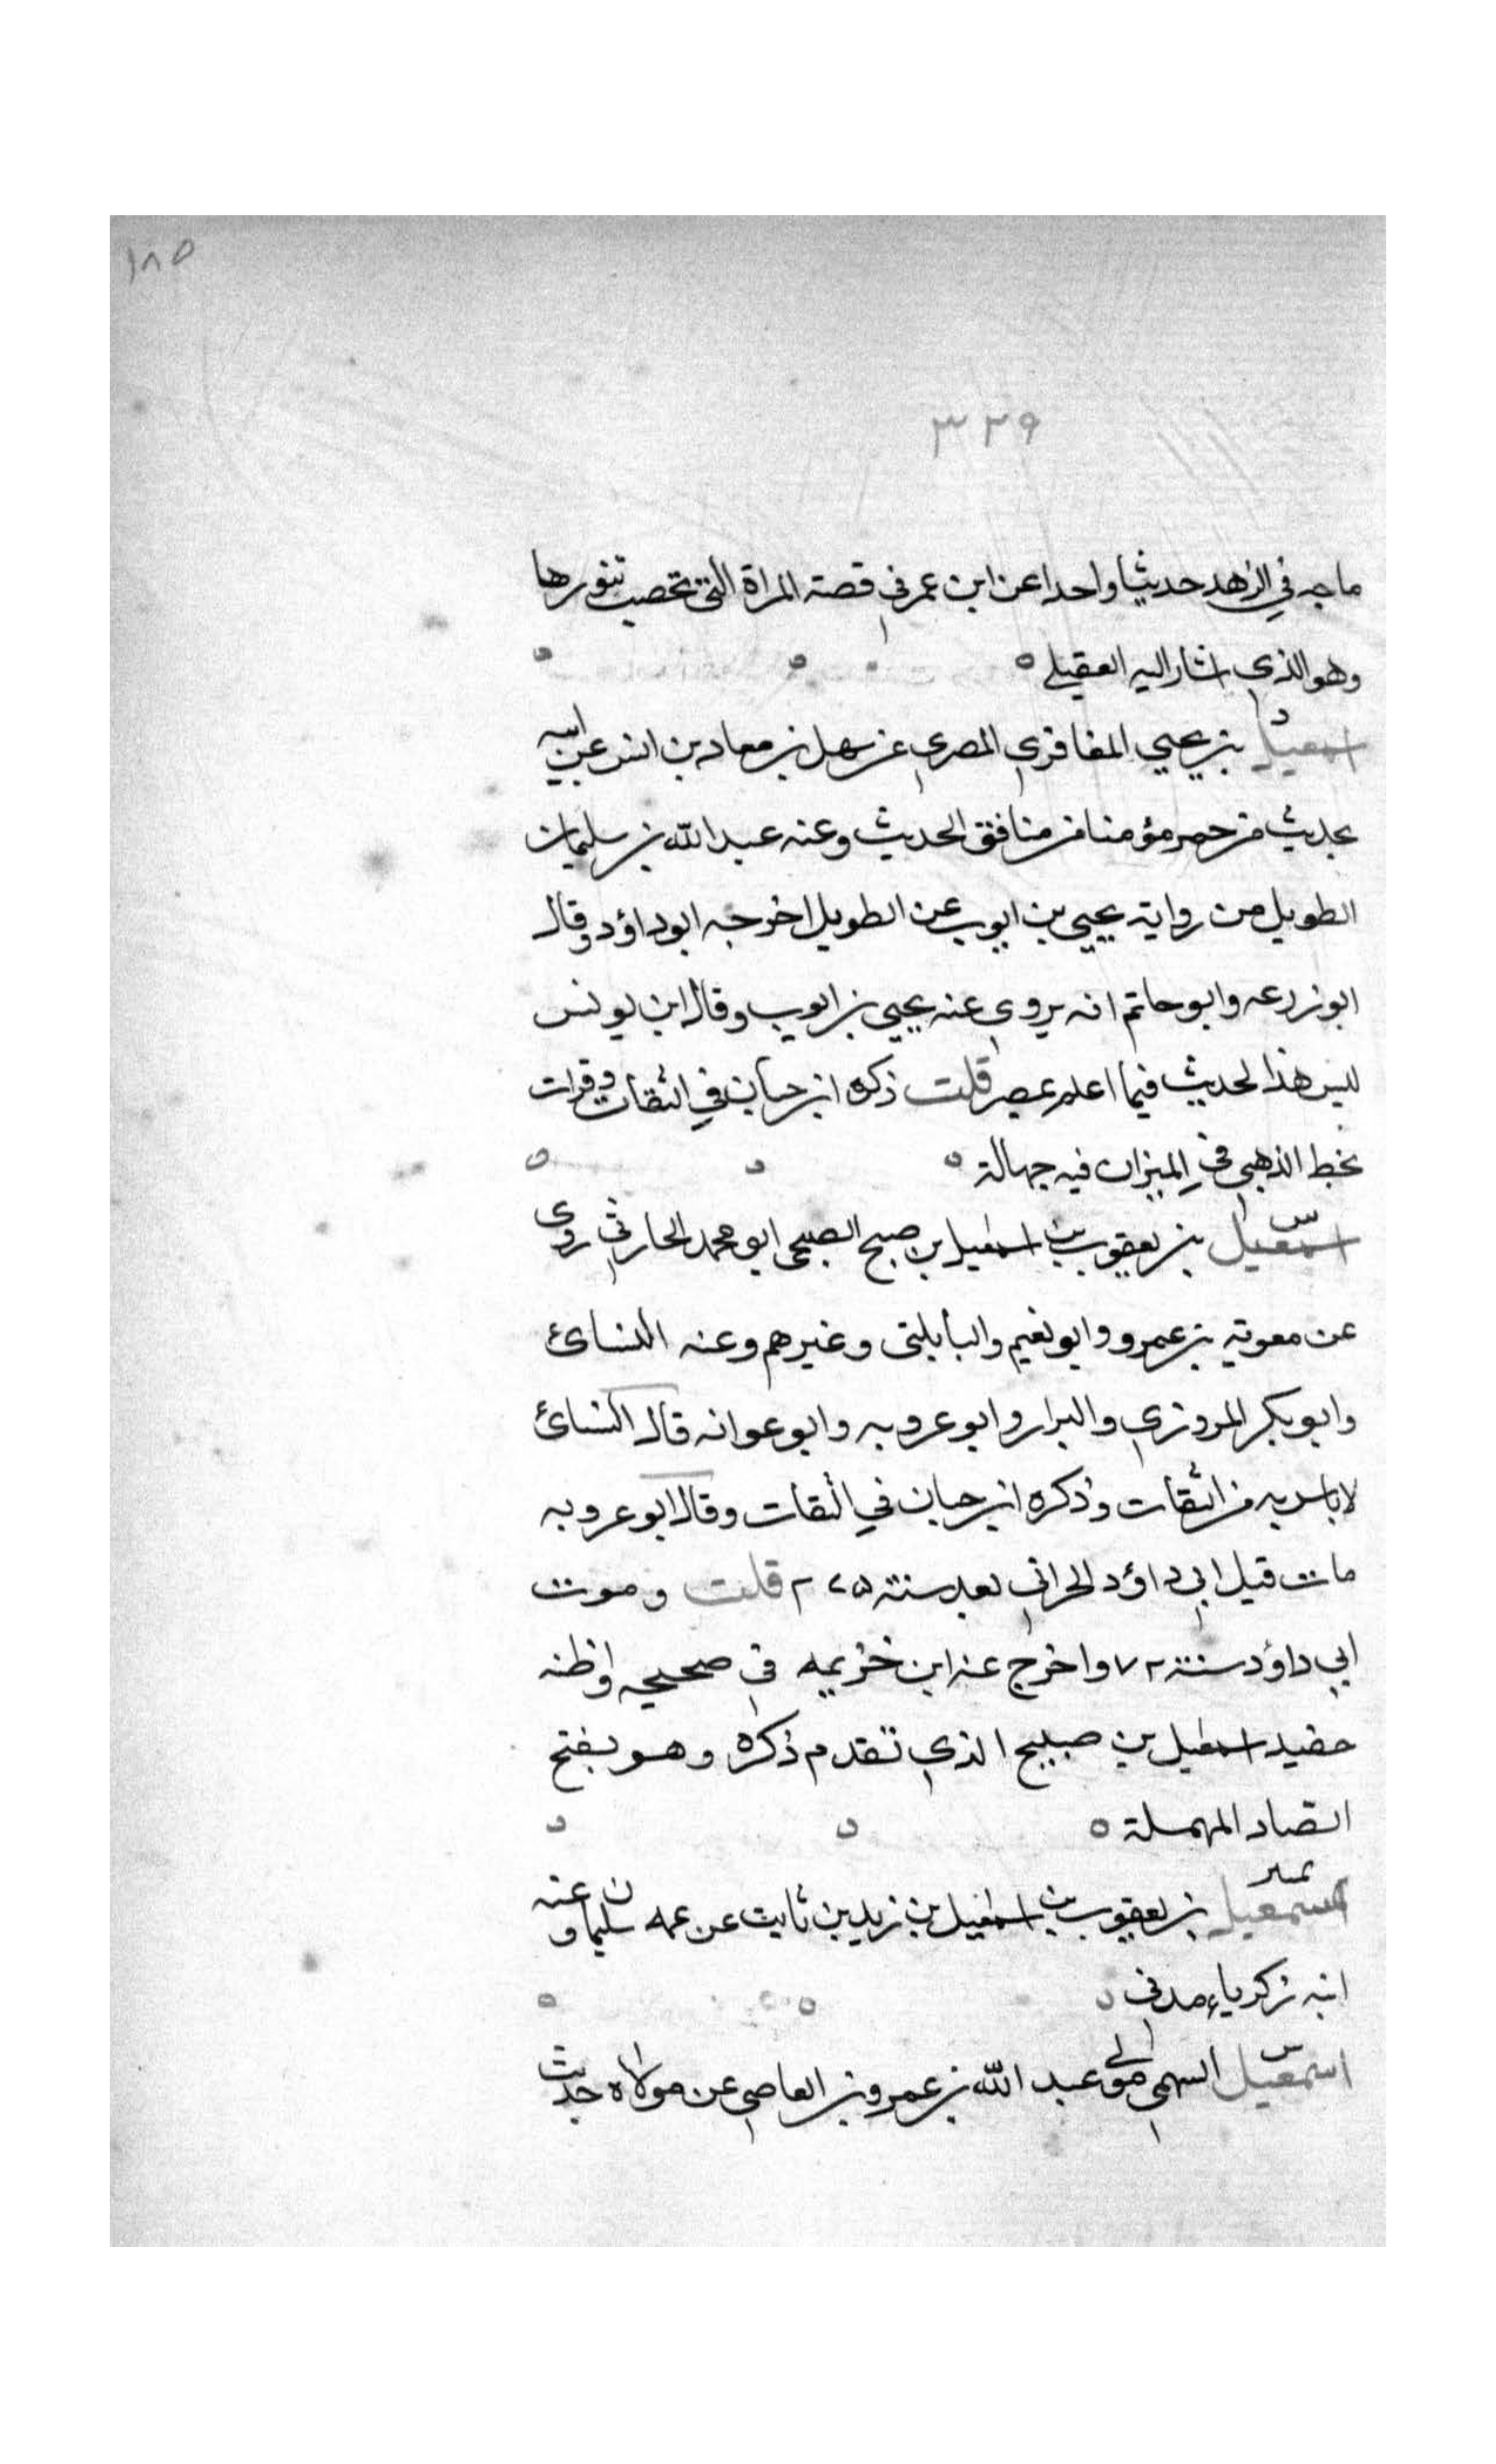 ١٨٥
٣٢٩
ماجه في الزهد حديثا واحدا عن ابن عمر في قصة المراة التي تحصب تنورها
وهو الذي اشار اليه العقيلي ه
د
اسمعيل بن يحيي المغافري المصري عن سهل بن معاد بن انس عن ابيه
بحديث من حمى مؤمنا من منافق الحديث وعنه عبد الله بن سليمان
الطويل من رواية يحيي بن ايوب عن الطويل اخرجه ابو داؤد وقال
ابو زرعه وابو حاتم انه يروي عنه يحيي بن ايوب وقال ابن يونس
ليس هذا الحديث فيما اعلم بمصر قلت ذكره ابن حبان في الثقات وقرات
بخط الذهبي في الميزان فيه جهالة ه
س
اسمعيل بن يعقوب بن اسمعيل بن صبيح الصبيحي ابو محمد الحارثي روى
عن معوية بن عمرو وابو نعيم والبابلتى وغيرهم وعنه النسائ
وابو بكر المروزي والبزار وابو عروبه وابو عوانه قال النسائ
لا باس به من الثقات وذكره ابن حبان في الثقات وقال ابو عروبه
مات قبل ابي داؤد الحراني بعد سنة ٢٧٥ قلت وموت
ابي داؤد سنة ٧٢ واخرج عنه ابن خزيمه في صحيحه واظنه
حفيد اسمعيل بن صبيح الذي تقدم ذكره وهو بفتح
الصاد المهملة ه
تمييز
اسمعيل بن يعقوب بن اسمعيل بن زيد بن ثابت عن عمه سليمان وعنه
ابنه زكرياء مدني
س
اسمعيل السهمي مولى عبد الله بن عمرو بن العاصي عن مولاه حديث